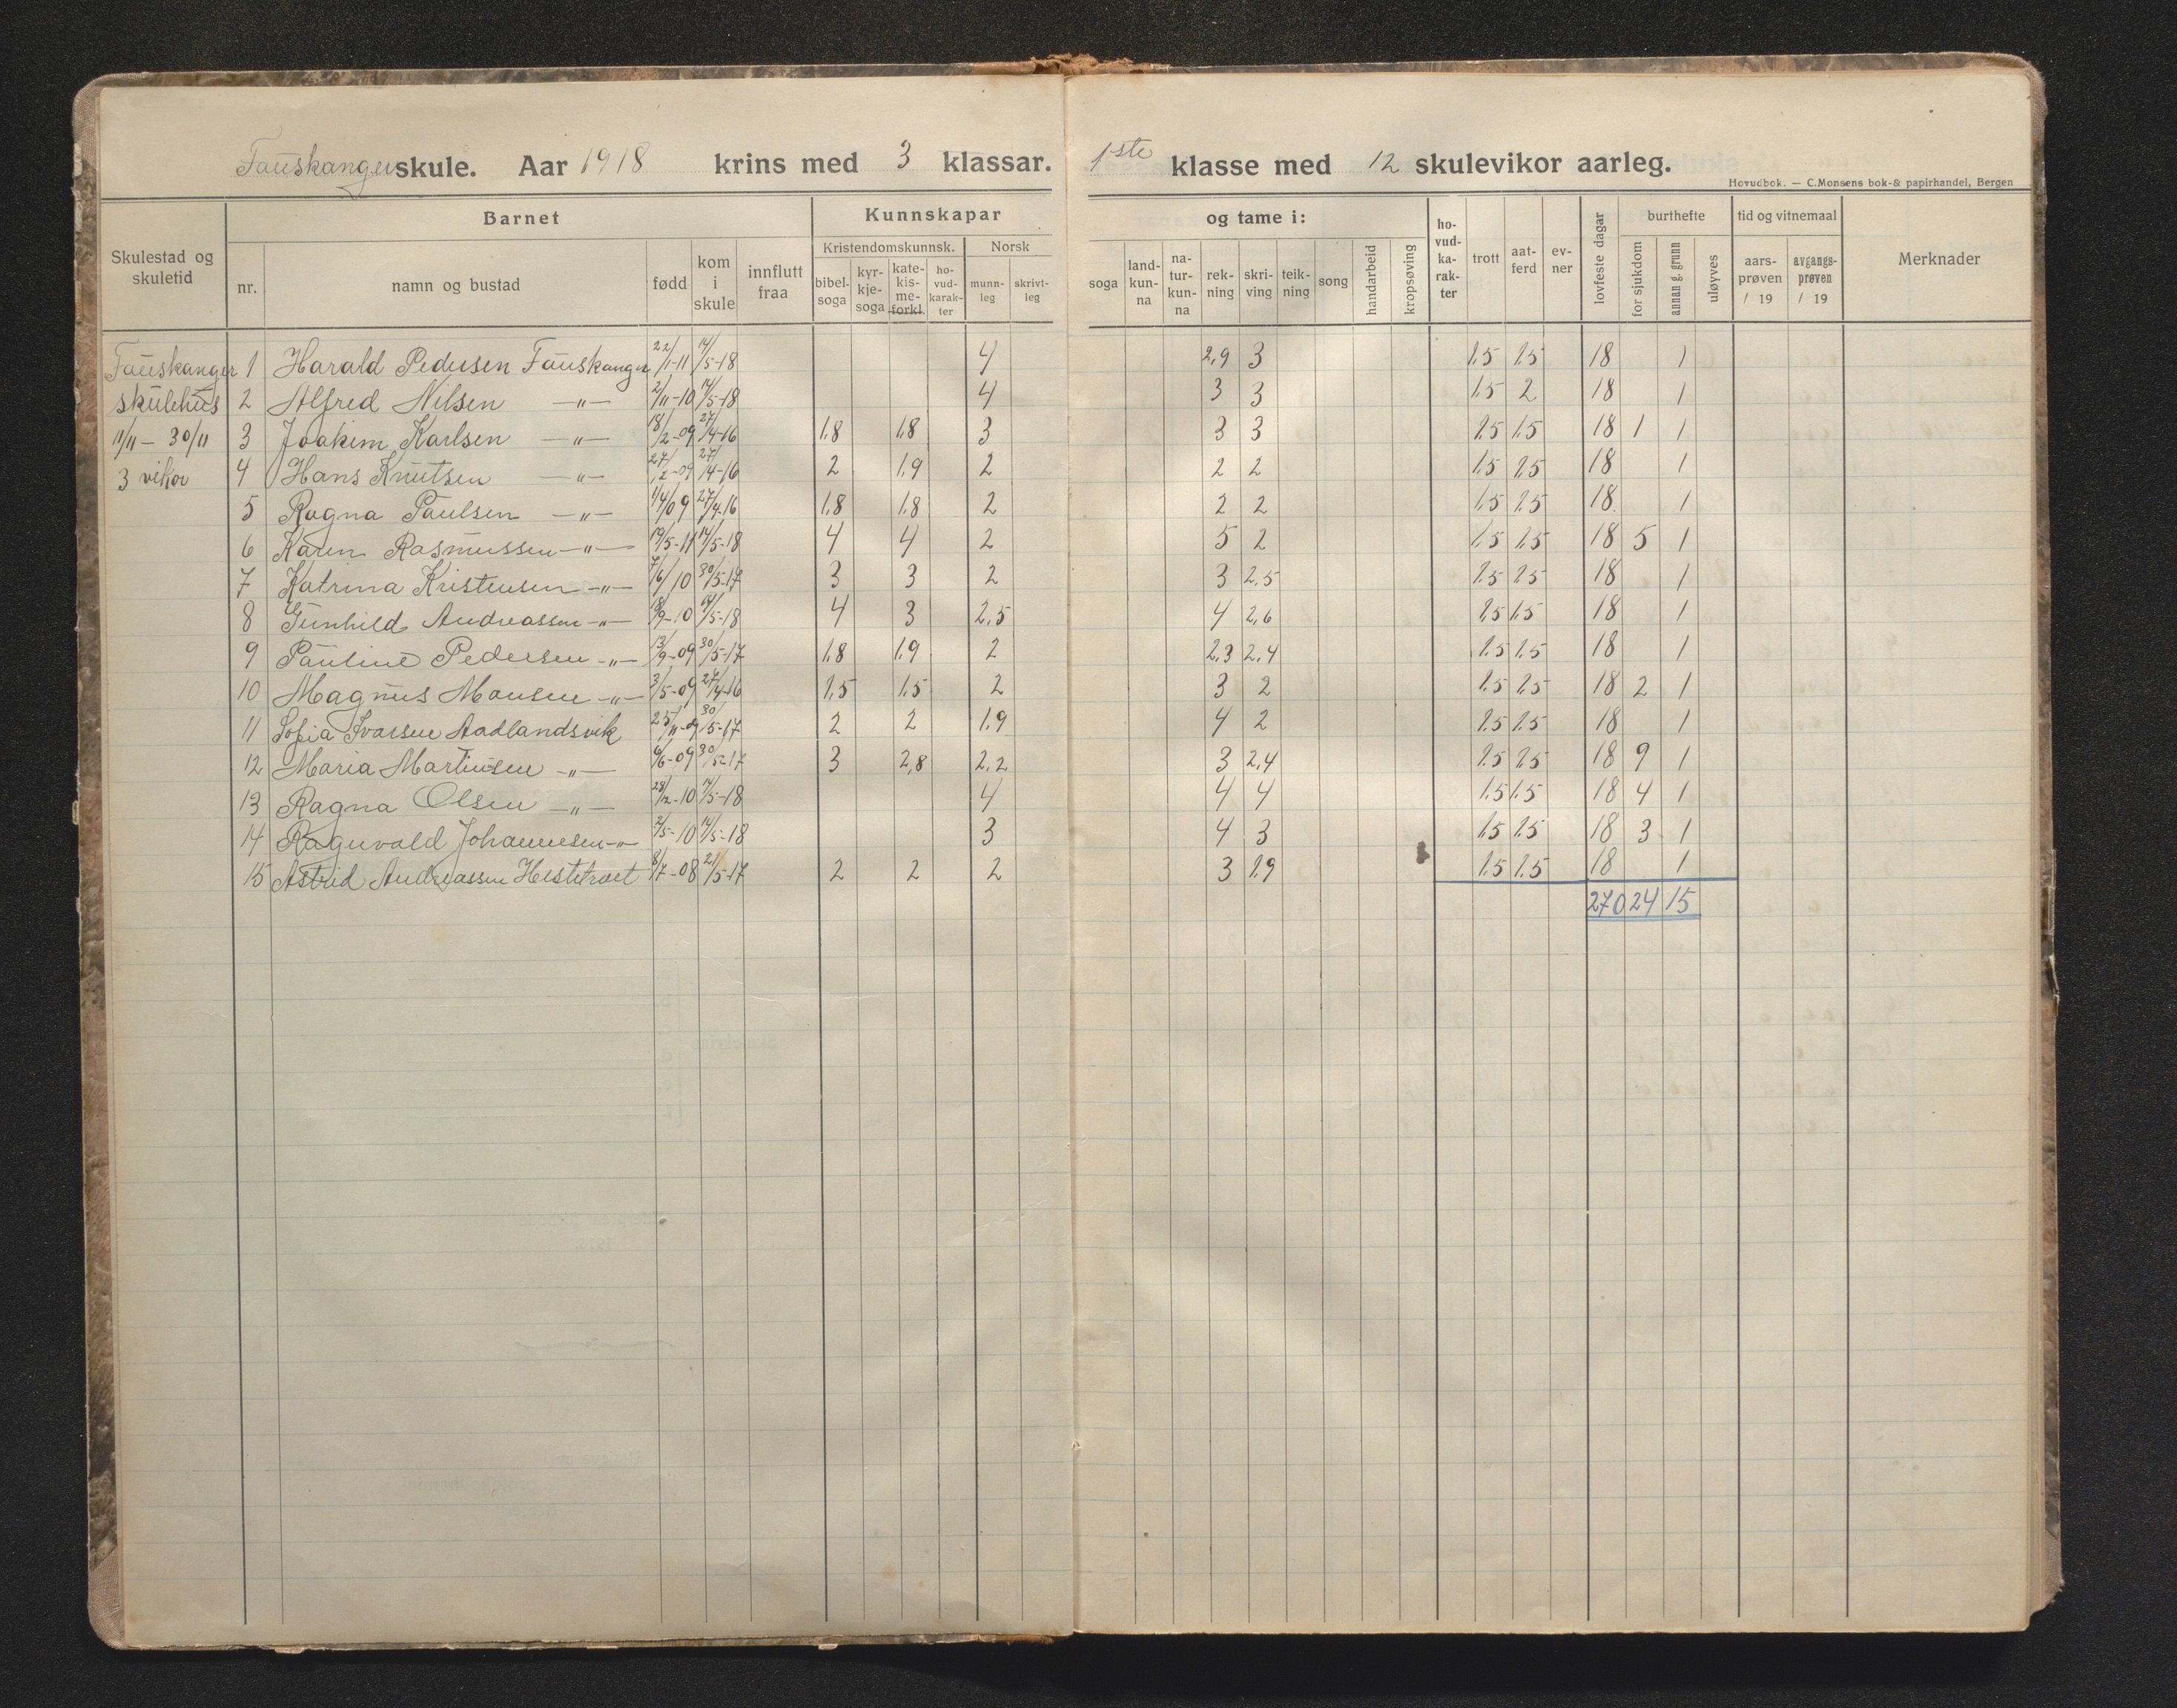 Fauskanger skule. Aar 1918 krins med 3 klassar. 1ste klasse med 12 skulevikor aarleg.
Hovudbok. — C.Monsens bok-& papirhandel, Bergen
Skulestad og skuletid
Barnet
nr. namn og bustad fødd kom i skule innflutt fraa
Kunnskapar og tame i:
Kristendomskunnsk. Norsk
bibel-soga kyr-kje-soga kate-kis-me-forkl. ho-vud-karak-ter munn-leg skrivt-leg
soga land-kun-na na-tur-kun-na rek-ning skri-ving teik-ning song handarbeid kropsøving
ho-vud-ka-rak-ter trott aat-ferd ev-ner lovfeste dagar
burthefte
for sjukdom annan g. grunn uløyves
tid og vitnemaal
aars-prøven / 19 avgangs-prøven / 19
Merknader
Fauskanger 1 Harald Pedersen Fauskanger 22/1-11 14/5-18 4 2,9 3 1.5 1.5 18 1
skulehus 2 Alfred Nilsen -"- 2/11-10 14/5-18 4 3 3 1.5 2 18 1
11/11 - 30/11 3 Joakim Karlsen -"- 18/2-09 27/4-16 1.8 1.8 3 3 3 1.5 1.5 18 1 1
3 vikor 4 Hans Knutsen -"- 27/2-09 27/4-16 2 1.9 2 2 2 1.5 1.5 18 1
5 Ragna Paulsen -"- 1/4/09 27/4.16 1.8 1.8 2 2 2 1.5 1.5 18. 1
6 Karen Rasmussen -"- 19/5-11 14/5-18 4 4 2 5 2 1.5 1.5 18 5 1
7 Katrina Kristensen -"- 7/6/10 30/5-17 3 3 2 3 2,5 1.5 1.5 18 1
8 Gunhild Andreassen -"- 18/9-10 14/5-18 4 3 2,5 4 2,6 1.5 1.5 18 1
9 Pauline Pedersen -"- 13/9-09 30/5-17 1.8 1.9 2 2,3 2,4 1.5 1.5 18 1
10 Magnus Monsen -"- 3/5-09 27/4-16 1,5 1.5 2 3 2 1.5 1.5 18 2 1
11 Sofia Ivarsen Aadlandsvik 25/11-09 30/5-17 2 2 1.9 4 2 1.5 1.5 18 1
12 Maria Martinsen -"- 6/6-09 30/5-17 3 2,8 2,2 3 2,4 1.5 1.5 18 9 1
13 Ragna Olsen -"- 28/2-10 14/5-18 4 4 4 1.5 1.5 18 4 1
14 Ragnvald Johannesen -"- 2/5-10 14/5-18 3 4 3 1.5 1.5 18 3 1
15 Astrid Andreassen Hestetræet 8/7-08 21/5-17 2 2 2 3 1.9 1.5 1.5 18 1
270 24 15